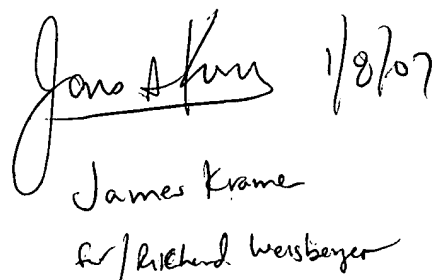 James A Kram 1/8/07
James Kramer
for / Richard Weisberger